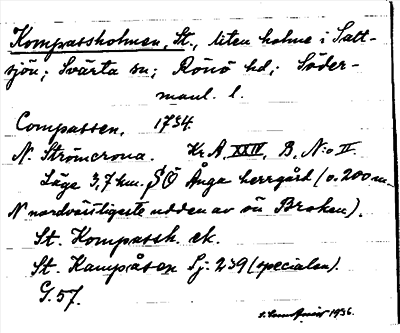 Kompassholmen, St., liten holme i Salt-
sjön; Svärta sn; Rönö hd; Söder-
manl. l.
Compassen, 1734.
N. Strömcrona. Kr.A XXIV, B, N:o II.
Läge 3,7 km. SÖ Ånga herrgård (o. 200 m.
N nordvästligaste udden av ön Broken).
St. Kompassh. ek.
St. Kampåsen Sj. 239 (specialen).
G. 57.
1936.